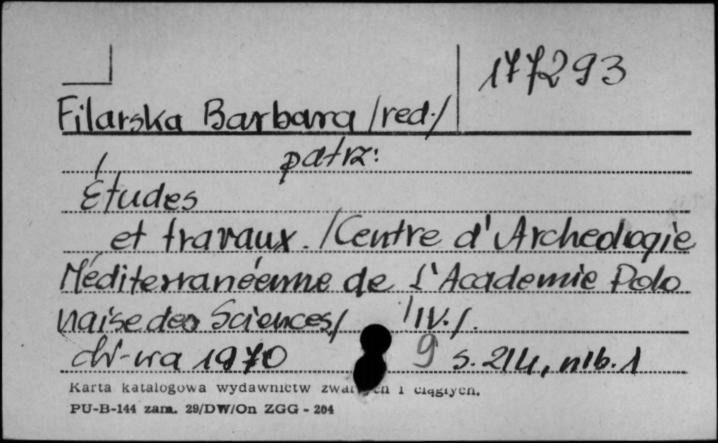 177293
Filarska Barbara /red./
patrz:
Études
et travaux. /Centre d'Archeologie
Méditerranéenne de L'Academie Polo
naise des Sciences/ /IV./.
W-wa 1970 9 s. 214, nlb. 1
Karta katalogowa wydawnictw zwartych i ciągłych.
PU-B-144 zam. 29/DW/On ZGG - 204